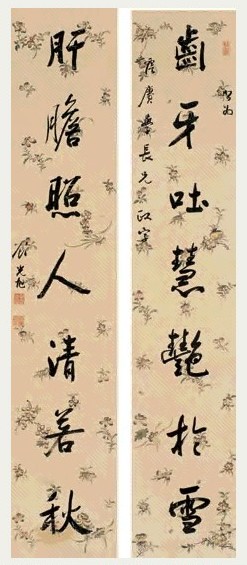 齒牙吐慧艷於雪
肝膽照人清若秋
顧光旭